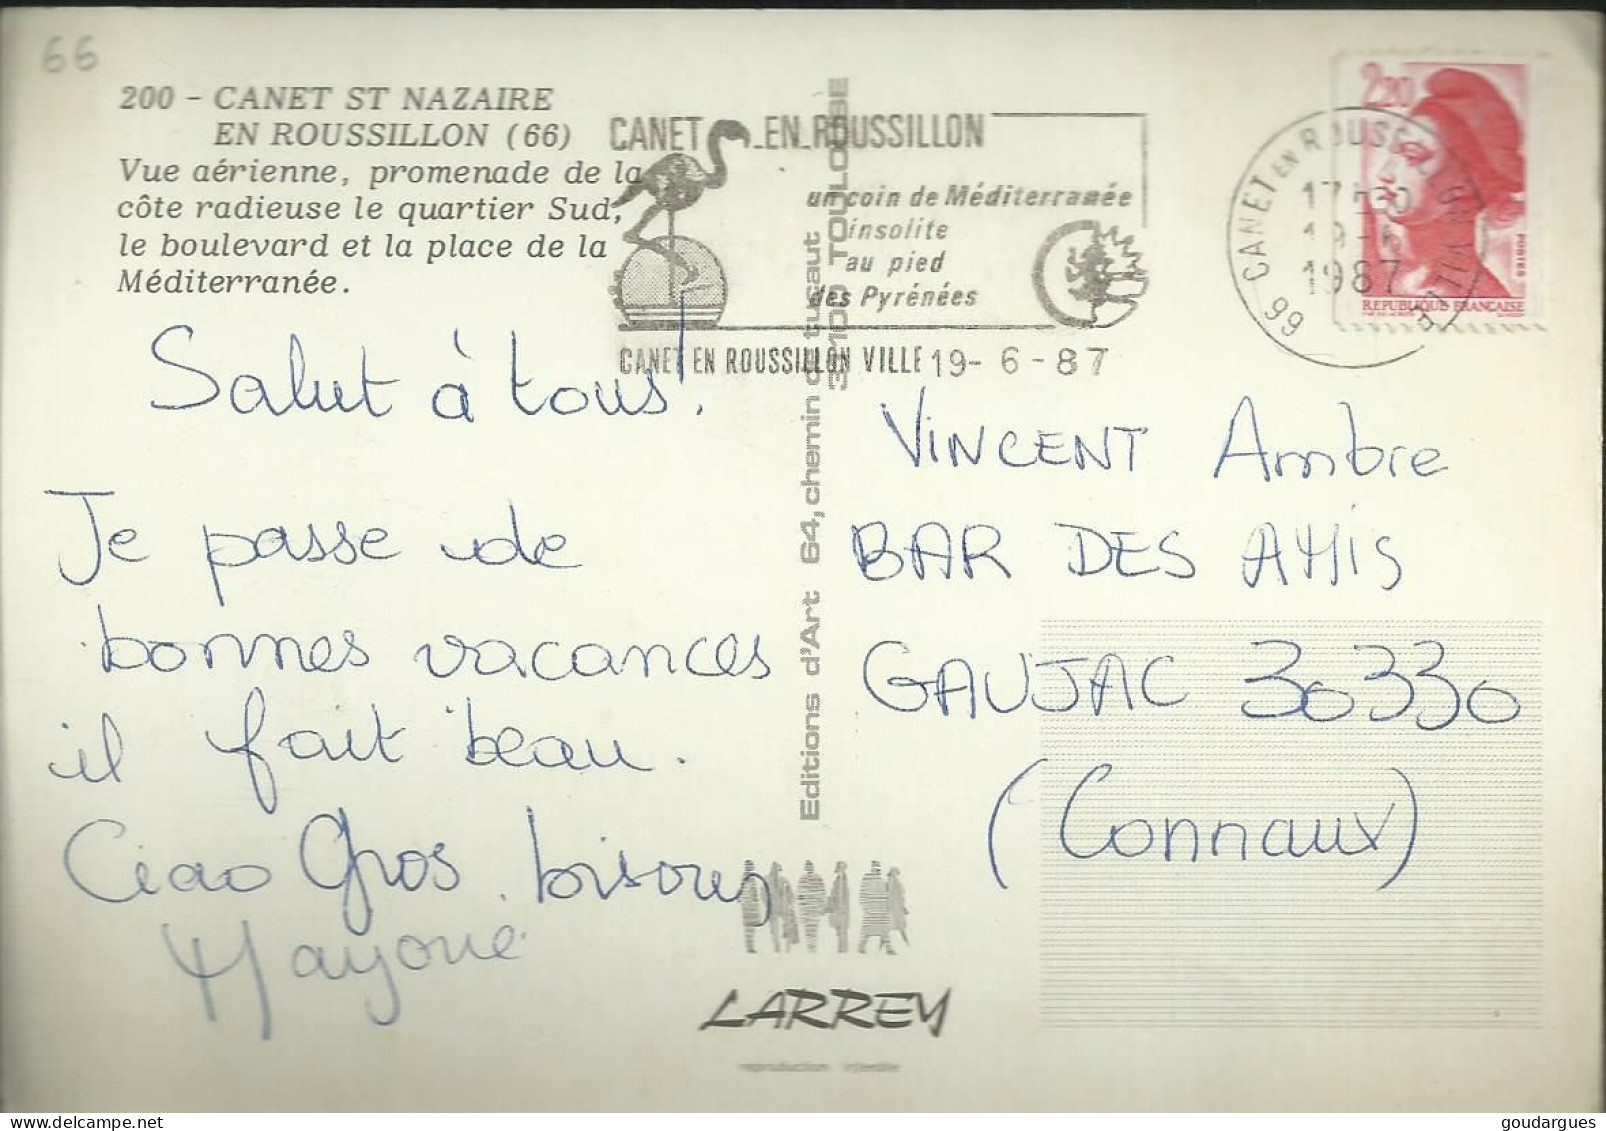 66
200 - CANET ST NAZAIRE
EN ROUSSILLON (66)
Vue aérienne, promenade de la
côte radieuse le quartier Sud,
le boulevard et la place de la
Méditerranée.
CANET EN ROUSSILLON
un coin de Méditerranée
insolite
au pied
des Pyrénées
CANET EN ROUSSILLON VILLE 19-6-87
2,20
POSTES
REPUBLIQUE FRANÇAISE
CANET EN ROUSSILLON VILLE
66
1987
Salut à tous!
Je passe de
bonnes vacances
il fait beau.
Ciao Gros bisous
Editions d'Art 64, chemin du tucaut
31100 TOULOUSE
VINCENT Ambre
BAR DES AMIS
GAUJAC 30330
(Connaux)
LARREY
reproduction interdite
goudargues